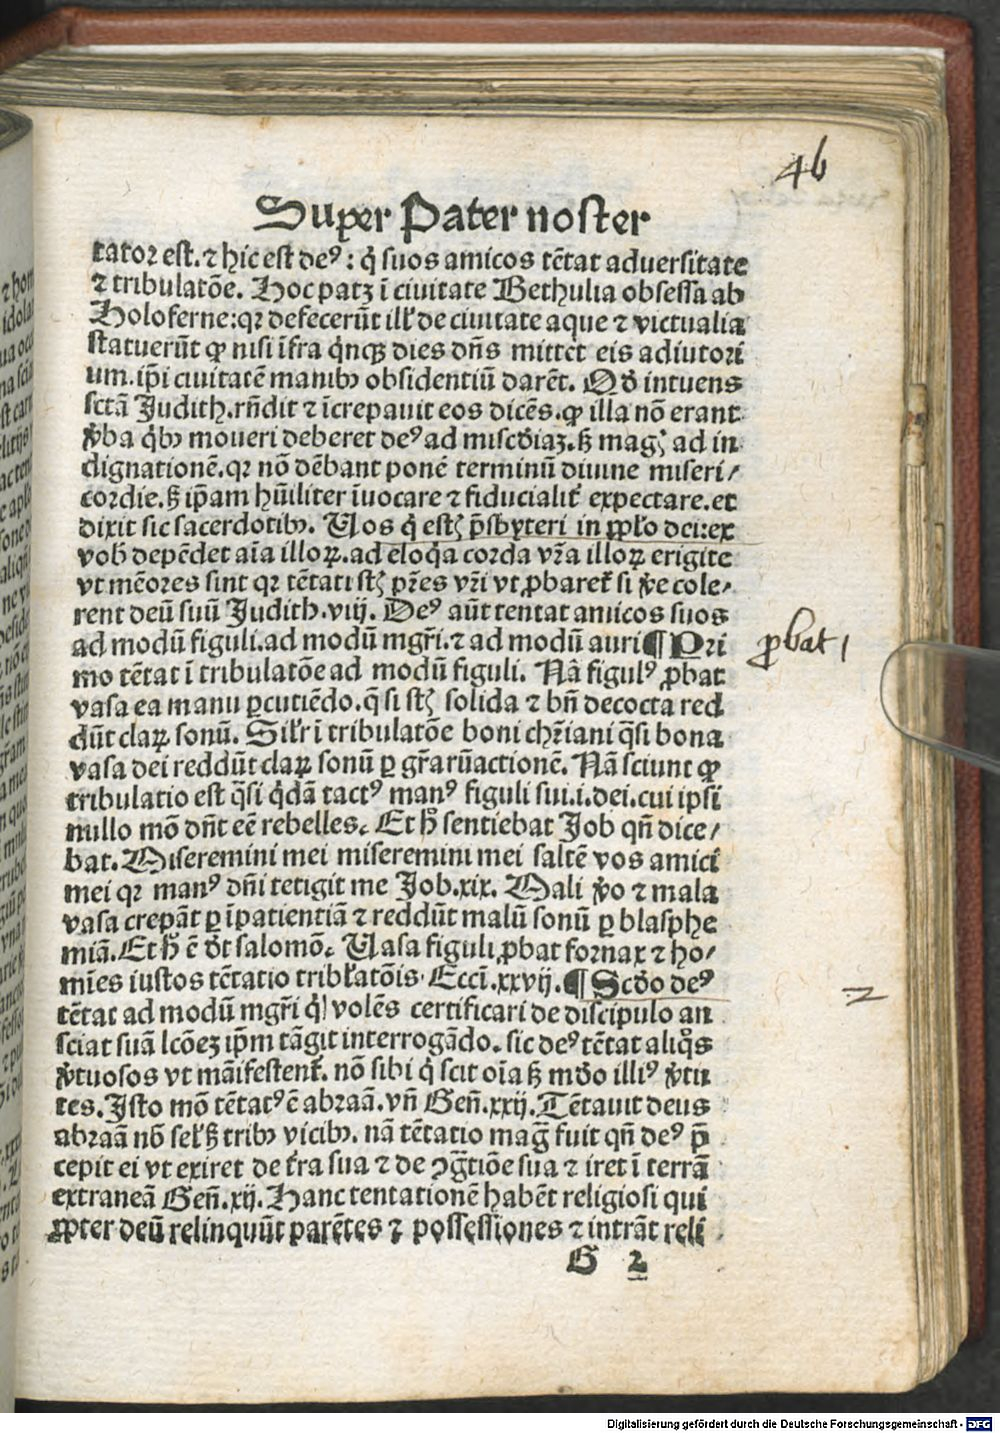 46
Super Pater noster
tator est. ⁊ hic est deꝰ : q̇ suos amicos tētat aduersitate
⁊ tribulatōe. Hoc patꝫ ī ciuitate Bethulia obsessa ab
Holoferne: qꝛ defecerūt ill' de ciuitate aque ⁊ victualia
statuerūt ꝙ nisi īfra q̇nqꝫ dies dn̄s mittet eis adiutori
um. ip̄i ciuitatē manibꝰ obsidentiū darēt. Qd̓ intuens
sctā Judith. rn̄dit ⁊ īcrepauit eos dicēs. ꝙ illa nō erant
v̓ba q̇bꝰ moueri deberet deꝰ ad misc̓diaꝫ. sꝫ mag̓ ad in
dignationē. qꝛ nō dēbant ponē terminū diuine miseri/
cordie. sꝫ ip̄am hūiliter īuocare ⁊ fiducialit̓ expectare. et
dixit sic sacerdotibꝰ. Uos q̇ estꝭ p̄sbyteri in ppl̓o dei: ex
vob̓ depēdet aīa illoꝝ. ad eloq̇a corda vr̄a illoꝝ erigite
vt mēores sint qꝛ tētati stꝭ pr̄es vr̄i vt ꝓbaret̓ si v̓e cole/
rent deū suū Judith. viij. Deꝰ aūt tentat amicos suos
ad modū figuli. ad modū mgr̄i. ⁊ ad modū auri ¶ Pri
ꝓbat 1
mo tētat ī tribulatōe ad modū figuli. Nā figulꝰ ꝓbat
vasa ea manu ꝑcutiēdo. q̄ si stꝭ solida ⁊ bn̄ decocta red
dūt claꝝ sonū. Silr̓ ī tribulatōe boni chr̄iani q̄si bona
vasa dei reddūt claꝝ sonū ꝑ gr̄aruꝫactionē. Nā sciunt ꝙ
tribulatio est q̄si q̇dā tactꝰ manꝰ figuli sui. i. dei. cui ipsi
nullo mō dn̄t eē rebelles. Et h̓ sentiebat Job qn̄ dice/
bat. Miseremini mei miseremini mei saltē vos amici
mei qꝛ manꝰ dn̄i tetigit me Job. xix. Mali v̓o ⁊ mala
vasa crepāt ꝑ īpatientiā ⁊ reddūt malū sonū ꝑ blasphe
miā. Et h̓ ē d̓t salomō. Uasa figuli ꝓbat fornax ⁊ ho/
mīes iustos tētatio tribl̓atōis. Ecci. xxvij. ¶ Scd̓o deꝰ
2
tētat ad modū mgr̄i q̇ volēs certificari de discipulo an
sciat suā lcōeꝫ ip̄m tāgit interrogādo. sic deꝰ tētat aliq̊s
v̓tuosos vt māifestent̓. nō sibi q̇ scit oīa sꝫ md̓o illiꝰ v̓tu
tes. Isto mō tētatꝰ ē abraā. vn̄ Gen̄. xxij. Tētauit deus
abraā nō sel̓ sꝫ tribꝰ vicibꝰ. nā tētatio mag̓ fuit qn̄ deꝰ p̄
cepit ei vt exiret de t̓ra sua ⁊ de ꝯgtiōe sua ⁊ iret ī terrā
extraneā Gen̄. xij. Hanc tentationē habēt religiosi qui
ꝓpter deū relinquūt parētes ⁊ possessiones ⁊ intrāt reli
G 2
Digitalisierung gefördert durch die Deutsche Forschungsgemeinschaft - DFG